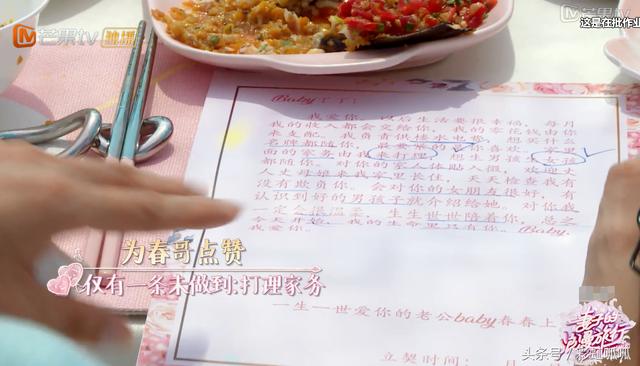 芒果tv 独播
芒果tv
这是在批作业
Baby丁丁:
我爱你,以后生活要很幸福,每月
我的收入都会交给你,我的零花钱由你
来支配。我负责供楼水电费,想买什么
名牌都随你,最要紧的
面的家务由我来打理。想生男孩
女孩
都随你。对你的家人体贴入微,欢迎丈
人丈母娘来我家里长住,天天检查我有
没有欺负你。会对你的女朋友很好,有
认识到好的男孩子就介绍给她。对你我
一定会很温柔,生生世世陪着你,总之
今天开始,我的生命里只有你。Baby,
我爱你。
一生一世爱你的老公baby春春上
立契时间:
月
日
为春哥点赞
仅有一条未做到:打理家务
妻子的
浪漫旅行
头条号/